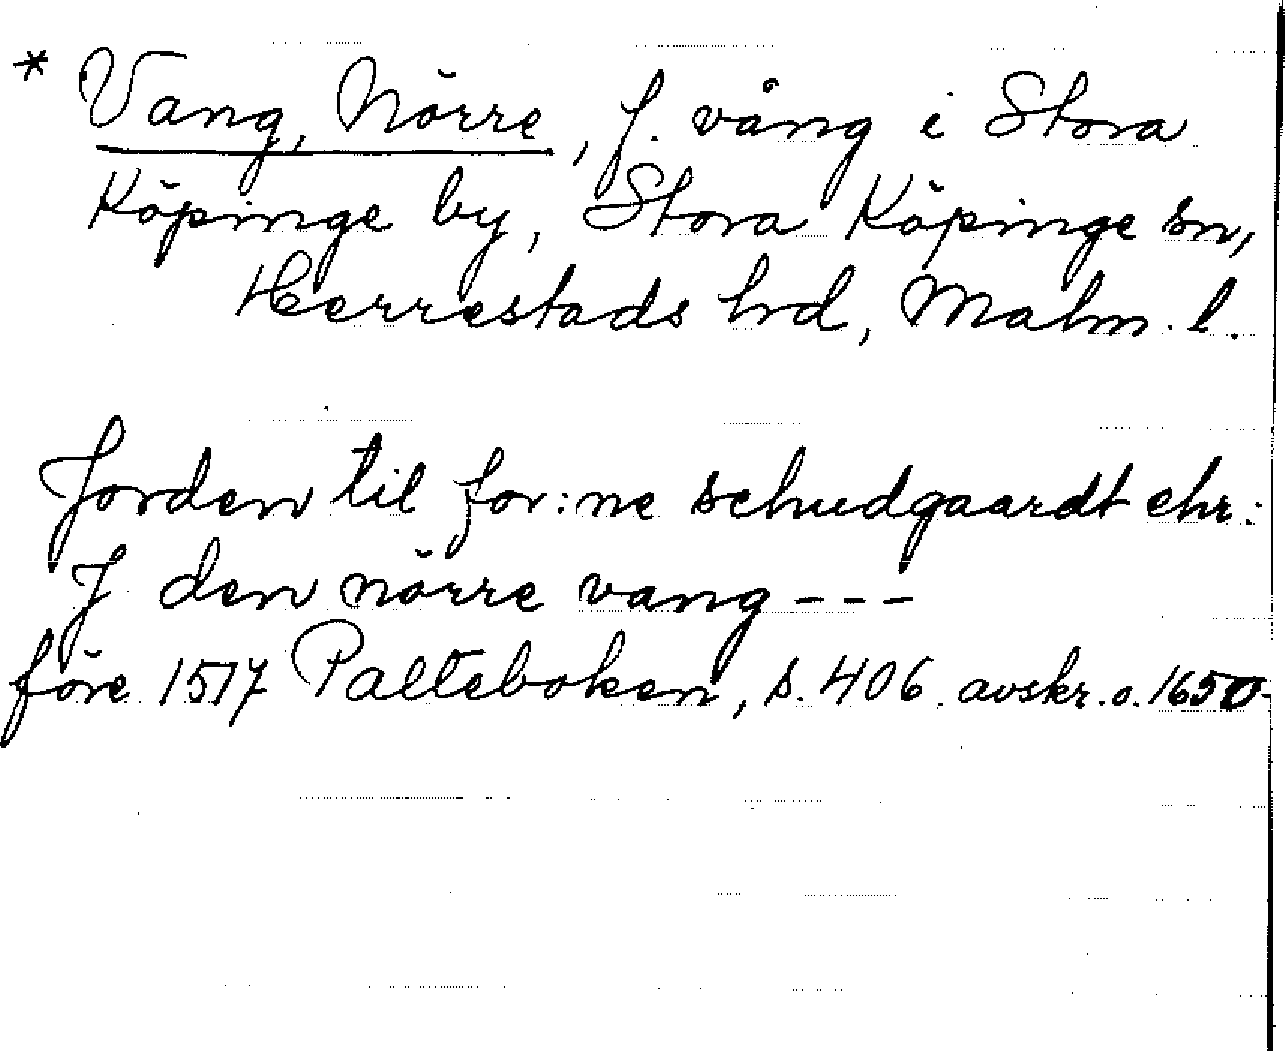 * Vang, Nörre, f. vång i Stora
Köpinge by, Stora Köpinge sn,
Herrestads hrd, Malm. l.
Jorden til for:ne schudgaardt ehr:
J den nörre vang - - -
före 1517 Palteboken, s. 406. avskr. o. 1650-